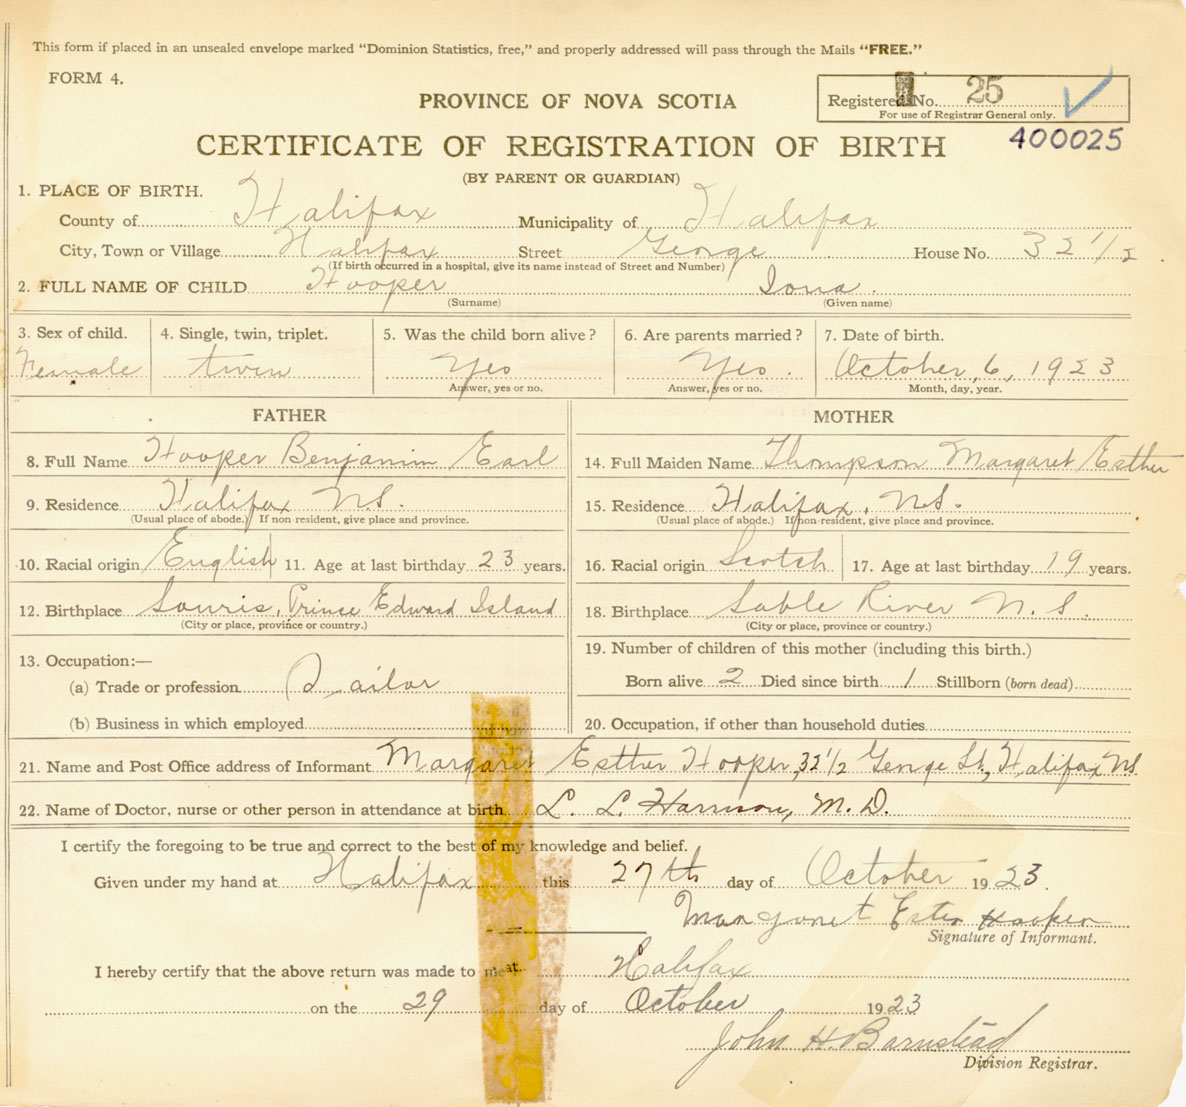 This form if placed in an unsealed envelope marked "Dominion Statistics, free," and properly addressed will pass through the Mails "FREE."
FORM 4.
Registered No. 25
For use of Registrar General only.
PROVINCE OF NOVA SCOTIA
400025
CERTIFICATE OF REGISTRATION OF BIRTH
(BY PARENT OR GUARDIAN)
1. PLACE OF BIRTH.
County of Halifax Municipality of Halifax
City, Town or Village Halifax Street George House No. 32 1/2
(If birth occurred in a hospital, give its name instead of Street and Number)
2. FULL NAME OF CHILD Hooper Iona.
(Surname) (Given name)
3. Sex of child. 4. Single, twin, triplet. 5. Was the child born alive? 6. Are parents married? 7. Date of birth.
Female twin Yes Yes. October, 6, 1923
Answer, yes or no. Answer, yes or no. Month, day, year.
FATHER MOTHER
8. Full Name Hooper Benjamin Earl 14. Full Maiden Name Thompson Margaret Esther
9. Residence Halifax N.S. 15. Residence Halifax, N.S.
(Usual place of abode.) If non resident, give place and province. (Usual place of abode.) If non-resident, give place and province.
10. Racial origin English 11. Age at last birthday 23 years. 16. Racial origin Scotch 17. Age at last birthday 19 years.
12. Birthplace Souris, Prince Edward Island 18. Birthplace Sable River N.S
(City or place, province or country.) (City or place, province or country.)
13. Occupation:— 19. Number of children of this mother (including this birth.)
(a) Trade or profession Tailor Born alive 2 Died since birth 1 Stillborn (born dead)
(b) Business in which employed 20. Occupation, if other than household duties
21. Name and Post Office address of Informant Margaret Esther Hooper, 32 1/2 George St, Halifax N.S.
22. Name of Doctor, nurse or other person in attendance at birth L. L. Harrison, M.D.
I certify the foregoing to be true and correct to the best of my knowledge and belief.
Given under my hand at Halifax this 27th day of October 1923.
Margaret Ester Hooper
Signature of Informant.
I hereby certify that the above return was made to me at Halifax
on the 29 day of October 1923
John H. Barnstead
Division Registrar.